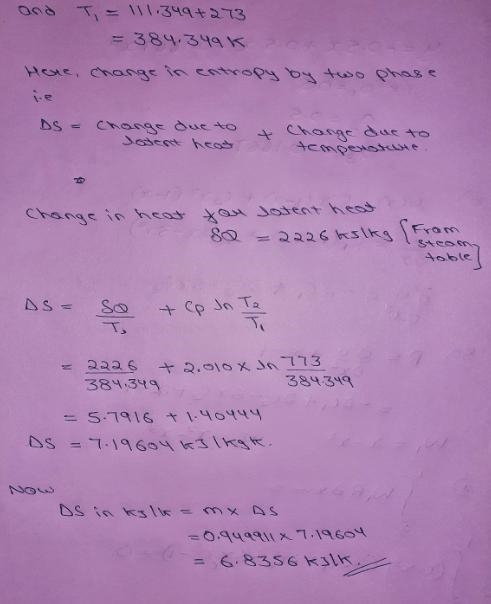 and T₁ = 111.349+273
= 384.349K
Here, change in entropy by two phase
i.e
ΔS = Change due to latent heat + Change due to temperature.
Change in heat for latent heat
δQ = 2226 kJ/kg [From steam table]
ΔS = δQ/Ts + Cp ln T₂/T₁
= 2226/384.349 + 2.010 x ln 773/384.349
= 5.7916 + 1.40444
ΔS = 7.19604 kJ/kgK.
Now
ΔS in kJ/K = m x ΔS
= 0.949911 x 7.19604
= 6.8356 kJ/K.